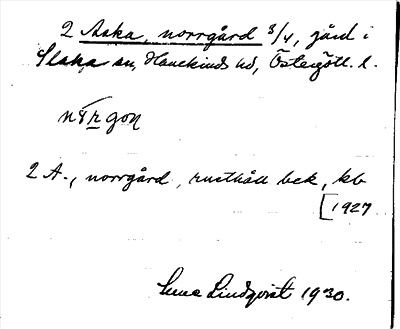 2 Aska, norrgård 3/4, gård i
Slaka sn, Hanekinds hd, Östergötl. l.
nọrgọn
2 A., norrgård, rusthåll bek, kb
[1927
Sune Lindqvist 1930.